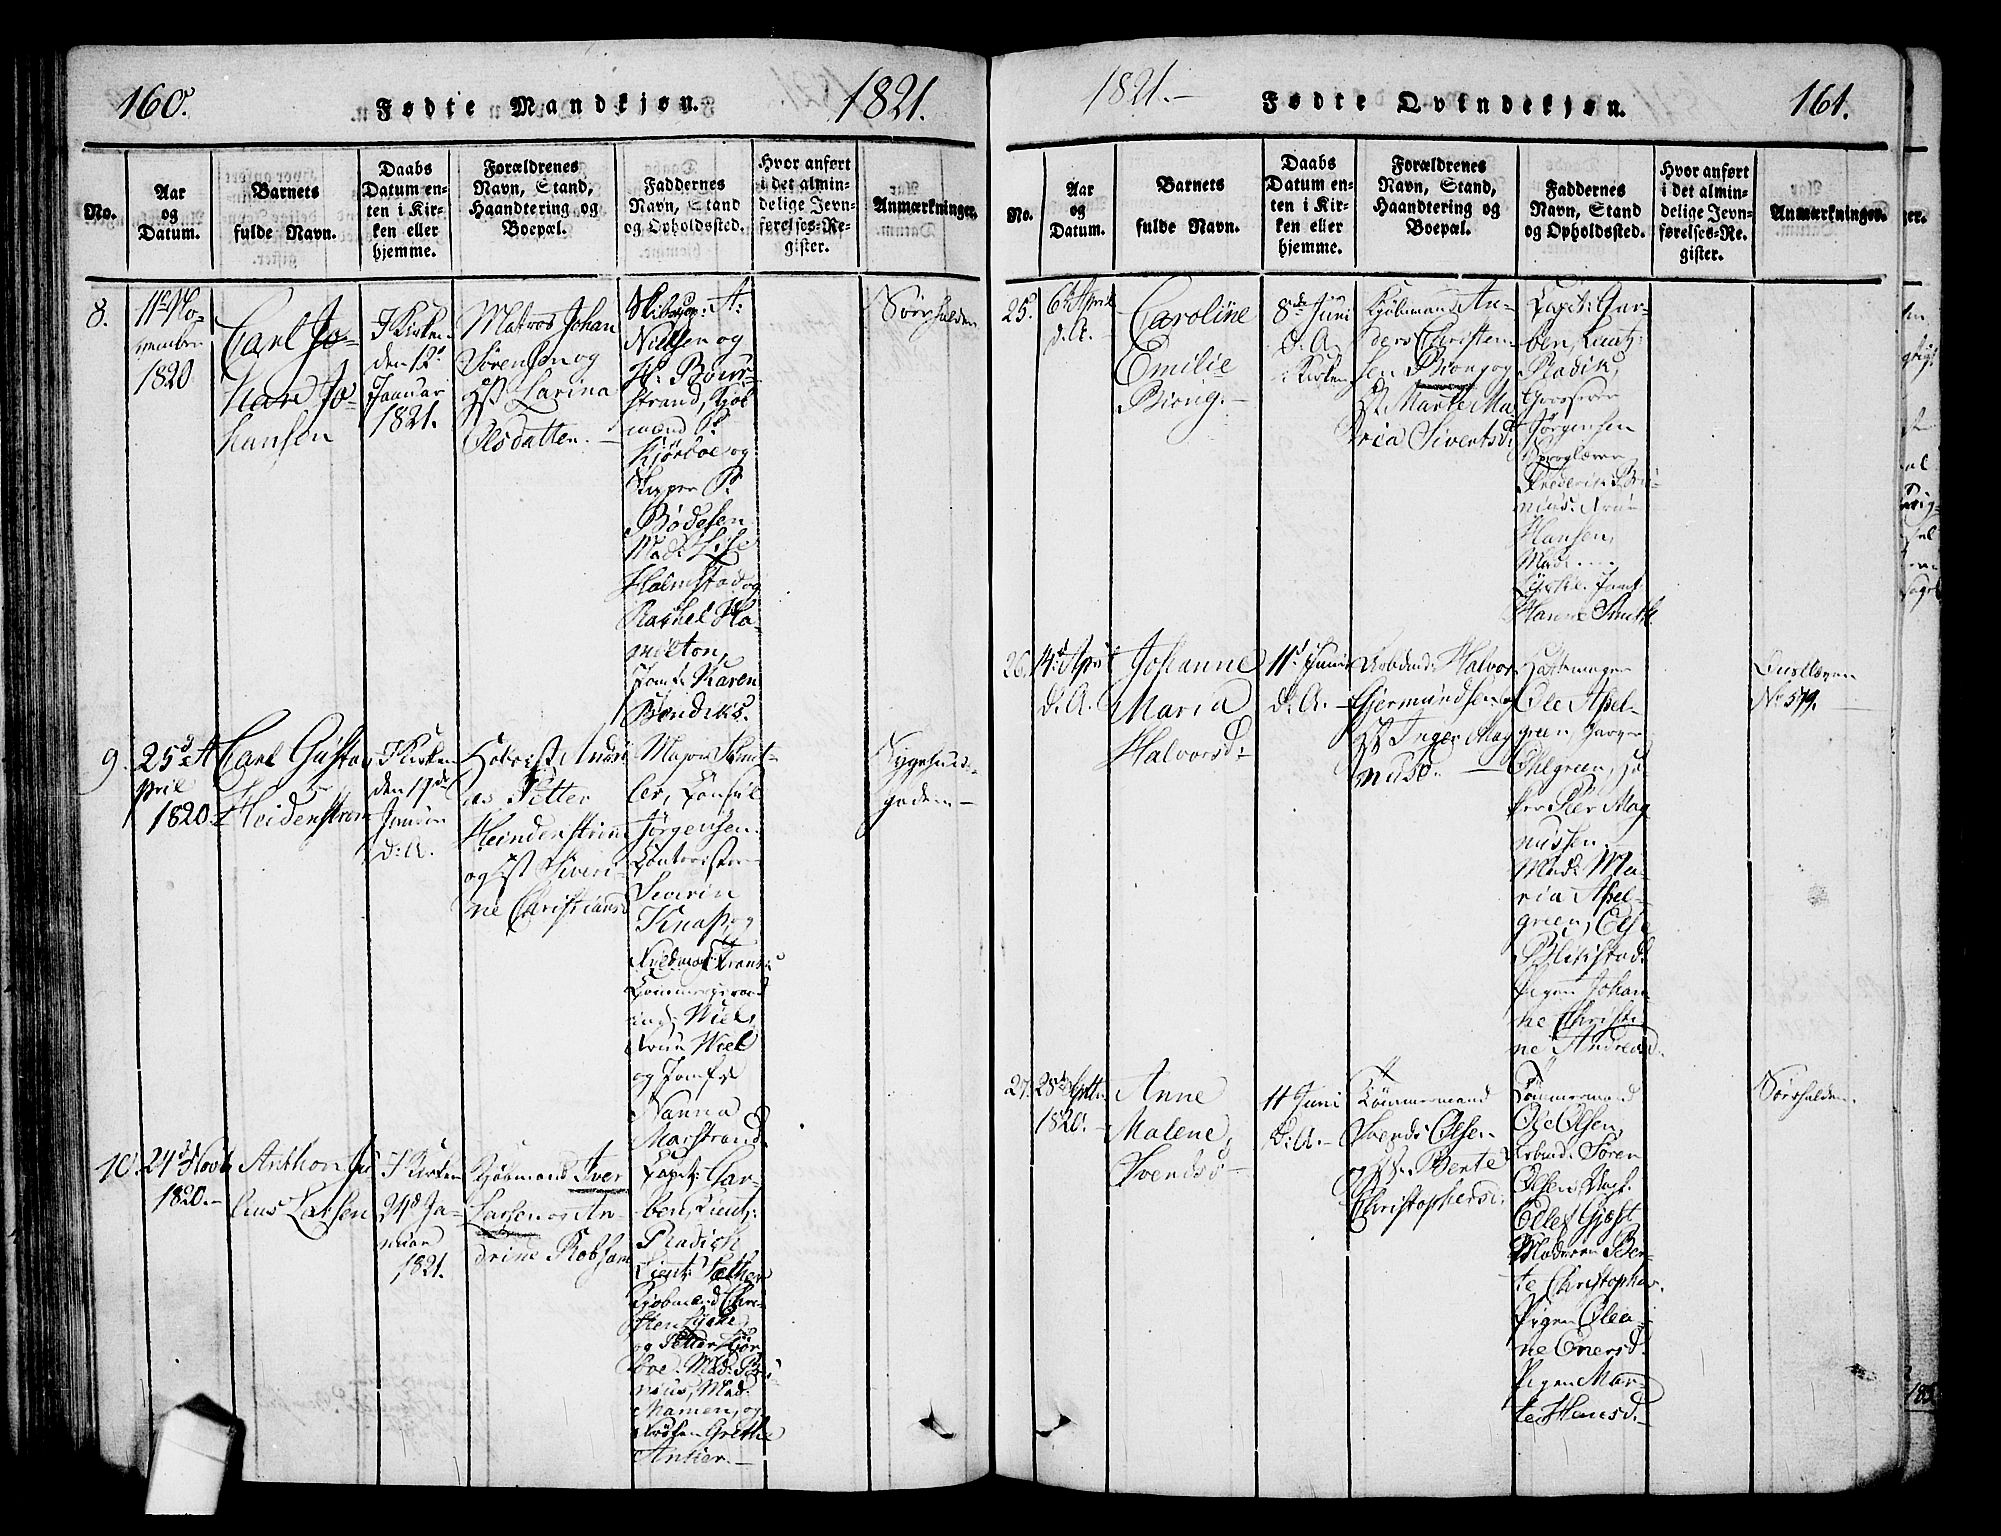 160.
Fødte Mandkjøn.
1821.
No.
Aar
og
Datum.
Barnets
fulde Navn.
Daabs
Datum en-
ten i Kir-
ken eller
hjemme.
Forældrenes
Navn, Stand,
Haandtering og
Boepæl.
Faddernes
Navn, Stand
og Opholdssted.
Hvor anført
i det almin-
delige Jevn-
førelses-Re-
gister.
Anmærkninger.
8.
11te No-
vember
1820
Carl Jo-
han Jo-
hansen
I Kirken
den 12te
Januar
1821.
Matros Johan
Sørensen og
Hst. Larina
Olsdatter.
A:
Nielsen og
P:
Kjørboe og
Skipper P.
Bødesen
Mad:
Holmstad og
Rachel Ha-
milton,
Jomfr Karen
Bendiks.
Sørhalden
9.
25de A-
pril
1820.
Carl Gustav
Heidenstrøm
I Kirken
den 19de
Januar
d:A.
Andre-
as Petter
Heindenstrøm
og Hst Siveri-
ne Christiansd
Major
ler, Consul
Jørgensen.
Contorister
Severin
Knap, og
Wiel,
Fruu Wiel
og Jomfr
Nanna
Marstrand.
10.
24de Novb
1820.-
Anthon Ju
lius Larsen
I Kirken
24de Ja-
nuar
1821.
Kjøbmand Iver
Larsen og An-
drine Robsam
Capt: Gar-
ben, Lieut:
Radich
Lieut:
Kjøbmand Chri-
sten
og Petter Kjør
boe. Mad:
Mad.
Mamen, og
Frøken Grethe
Anker.-
1821.-
Fødte Qvindekjøn.
161.
No.
Aar
og
Datum.
Barnets
fulde Navn.
Daabs
Datum en-
ten i Kir-
ken eller
hjemme.
Forældrenes
Navn, Stand,
Haandtering og
Boepæl.
Faddernes
Navn, Stand
og Opholdssted.
Hvor anført
i det almin-
delige Jevn-
førelses-Re-
gister.
Anmærkninger.
25.
6te April
d.A.-
Caroline
Emilie
Biong.-
8de Juni
d.A.
i Kirken
Kjøbmand An-
ders Christen-
sen Biong og
Hst. Marte Ma-
ria Sivertsd:
Capt: Gar-
ben, Lieut:
Radik,
Grosserer
Jørgensen
Sproglærer
Fruu
Hansen,
Mad:
Jomf:
Hanne Smith
26.
14de April
d.A.
Johanne
Maria
Halvorsd:
11te Junii
d.A.-
Arbdmd: Halvor
Gjermundsen og
Hst Inger Mag
nusd.-
Hattemager
Ole Apel-
green, Garver
Ohlgreen,
Peer Mag
nussen.-
Mad: Ma-
ria Apel-
green, Else
Blikstad.
Pigen Johan-
ne Christi-
ne Andersd.
No 579.
27.
28de Sept.
1820.-
Anne
Malene,
Svendsd-
11 Juni
d:A.-
Tømmermand
Svend Olsen
og Hst. Bente
Christophersd:
Tømmermand
Ole Olsen,
Arbmd: Søren
Olsen,
Gjøst
Madmm Ber-
te Christopher.
Pigen Olea-
ne Enersd.
Pigen Mar-
te Hansd.-
Sørhalden.